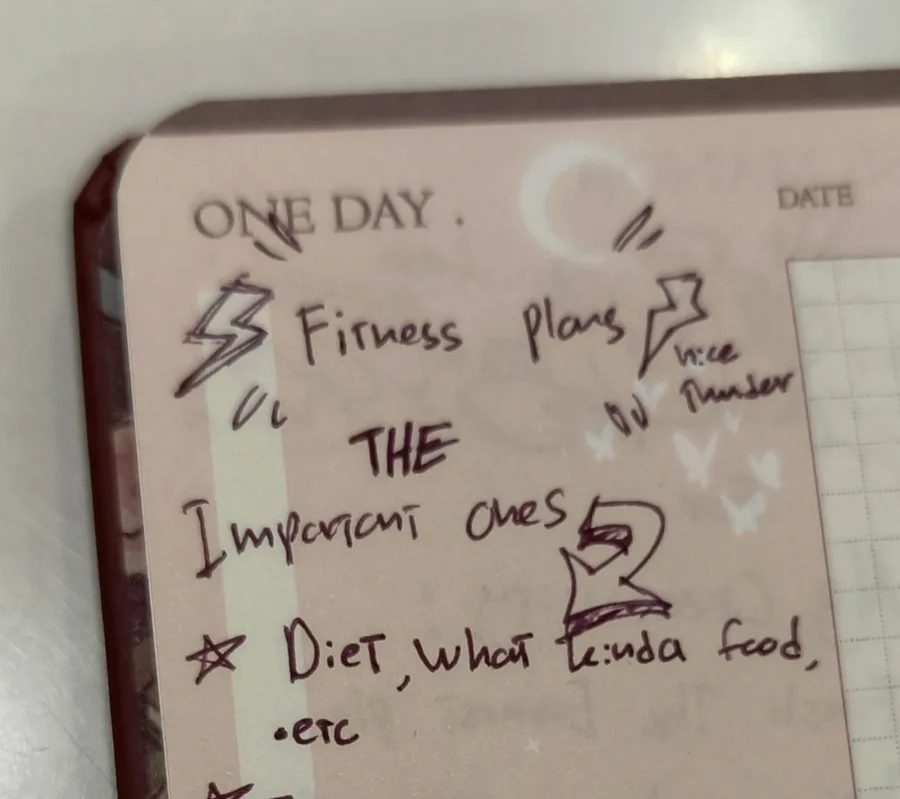 ONE DAY .
DATE
Fitness plans
nice
Thunder
THE
Important ones
Diet, what kinda food,
.etc